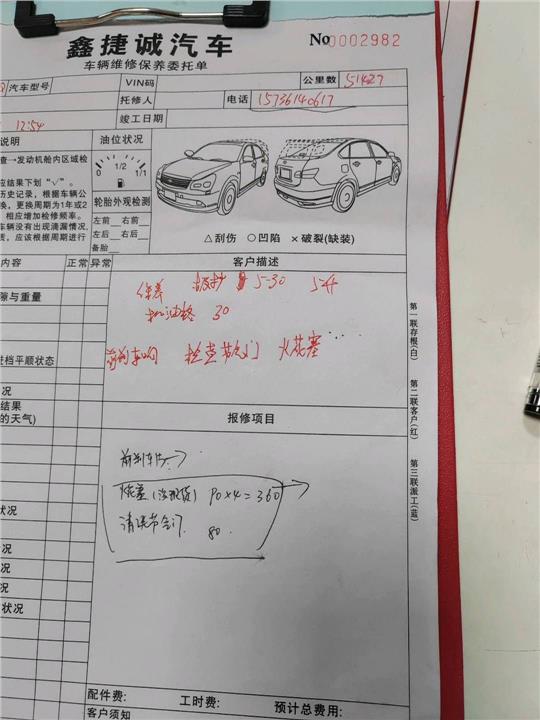 鑫捷诚汽车
车辆维修保养委托单
No 0002982
汽车型号
VIN码
公里数 51427
托修人
电话 15736140617
竣工日期
17:54
说明
油位状况
1/2
1/1
查→发动机舱内区域检
应结果下划"√"。
历史记录，根据车辆公
换，更换周期为1年或2
相应增加检修频率。
车辆没有出现滴漏情况，
责，应该根据周期进行
轮胎外观检测
左前 右前
左后 右后
备胎
△刮伤 ○凹陷 ×破裂(缺装)
内容
正常
异常
客户描述
保养 5-30 5-4
机油格 30
隙与重量
前刹车响 检查节气门 火花塞
进档平顺状态
况
结果
的天气)
报修项目
前刹车片→
火花塞 90×4=360
清洗节气门 80
状况
况
况
况
况
状况
第一联存根(白)
第二联客户(红)
第三联派工(蓝)
配件费:
工时费:
预计总费用:
客户须知